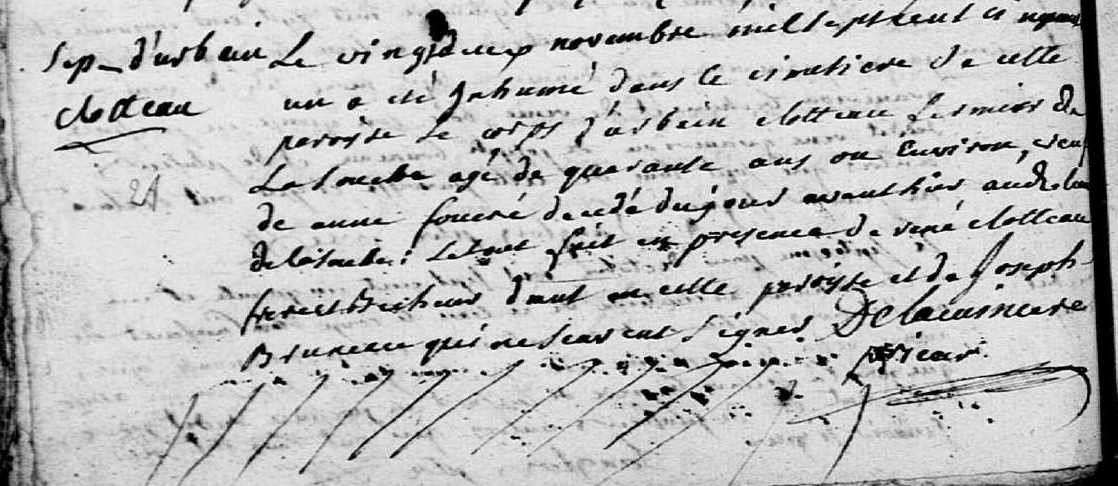 Sep. d'urbain
clotteau
Le vingt deux novembre mil sept cent cinquante
un a été Inhumé dans le cimetiere de cette
paroisse le corps d'urbain clotteau fermier de
La Souche agé de quarante ans ou environ, veuf
de anne foucré decedé du jour avant hier audit lieu
de la Souche. Le tout fait en presence de rené clotteau
frere et Becheur dmt en cette paroisse et de Joseph
Bruneau qui ne scavent signer Delacoursiere
vicar